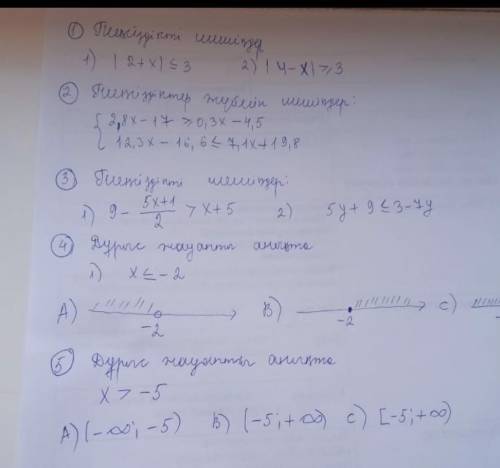 ① Теңсіздікті шешіңдер
1) |2+x| ≤ 3 2) |4-x| ≥ 3
② Теңсіздіктер жүйесін шешіңдер:
{ 2,8x-17 ≥ 0,3x-4,5
12,3x-16,6 ≤ 7,1x+19,8
③ Теңсіздікті шешіңдер:
1) 9 - \frac{5x+1}{2} > x+5 2) 5y+9 ≤ 3-7y
④ Дұрыс жауапты анықта
1) x ≤ -2
A) -2 B) -2 C)
⑤ Дұрыс жауапты анықта
x > -5
A) (-∞; -5) B) (-5; +∞) C) [-5; +∞)